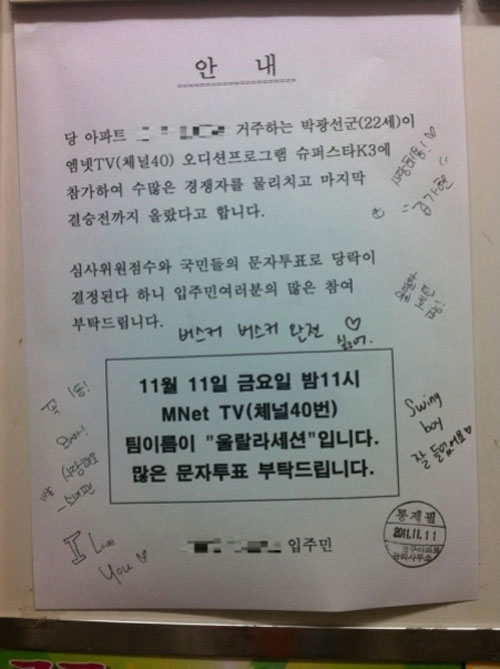 안 내
당 아파트 거주하는 박광선군(22세)이
엠넷TV(채널40) 오디션프로그램 슈퍼스타K3에
참가하여 수많은 경쟁자를 물리치고 마지막
결승전까지 올랐다고 합니다.
심사위원점수와 국민들의 문자투표로 당락이
결정된다 하니 입주민여러분의 많은 참여
부탁드립니다.
버스커 버스커 완전 ♡
싫어.
11월 11일 금요일 밤11시
MNet TV(채널40번)
팀이름이 "울랄라세션"입니다.
많은 문자투표 부탁드립니다.
Swing
boy
잘 듣고있어요♡
꼭 1등!
I Love
You ♡
입주민
통제필
2011.11.11
관리사무소